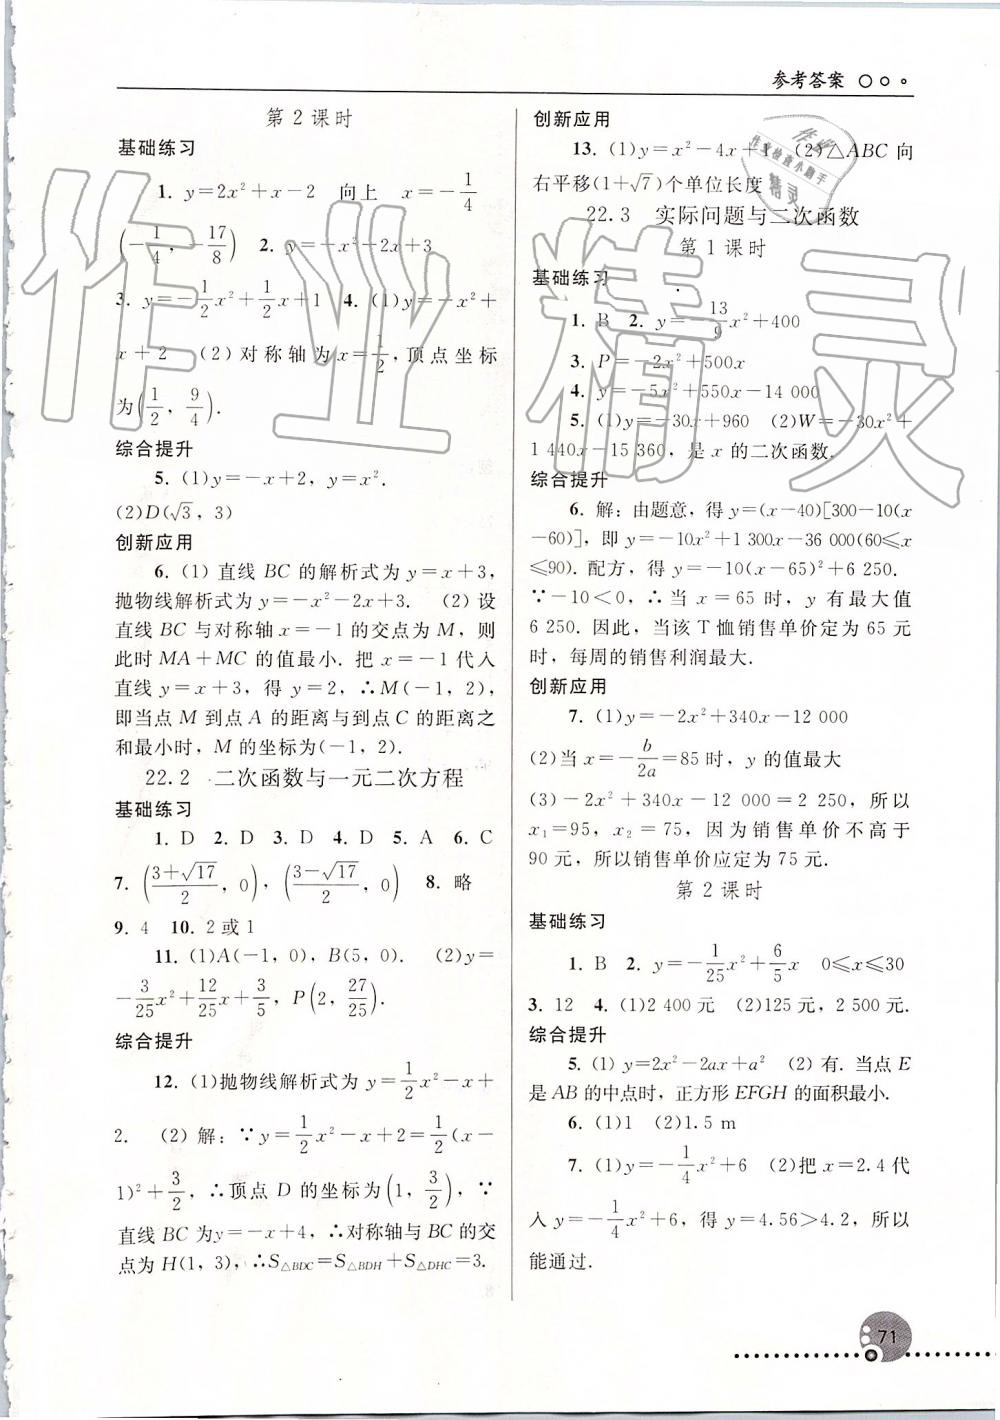 参考答案
第 2 课时
基础练习
1. y=2x²+x-2　向上　x=-1/4
(-1/4, -17/8)　2. y=-x²-2x+3
3. y=-1/2x²+1/2x+1　4. (1)y=-x²+
x+2　(2)对称轴为x=1/2,顶点坐标
为(1/2, 9/4).
综合提升
5. (1)y=-x+2, y=x².
(2)D(√3, 3)
创新应用
6. (1) 直线 BC 的解析式为 y=x+3,
抛物线解析式为 y=-x²-2x+3.　(2) 设
直线 BC 与对称轴 x=-1 的交点为 M, 则
此时 MA+MC 的值最小. 把 x=-1 代入
直线 y=x+3, 得 y=2, ∴M(-1, 2),
即当点 M 到点 A 的距离与到点 C 的距离之
和最小时, M 的坐标为(-1, 2).
22.2　二次函数与一元二次方程
基础练习
1. D　2. D　3. D　4. D　5. A　6. C
7. ((3+√17)/2, 0), ((3-√17)/2, 0)　8. 略
9. 4　10. 2或1
11. (1)A(-1, 0), B(5, 0).　(2)y=
-3/25x²+12/25x+3/5, P(2, 27/25).
综合提升
12. (1)抛物线解析式为 y=1/2x²-x+
2.　(2) 解: ∵y=1/2x²-x+2=1/2(x-
1)²+3/2, ∴顶点 D 的坐标为(1, 3/2), ∵
直线 BC 为y=-x+4, ∴对称轴与 BC 的交
点为 H(1, 3), ∴S△BDC=S△BDH+S△DHC=3.
创新应用
13. (1)y=x²-4x+　(2)△ABC 向
右平移(1+√7)个单位长度
22.3　实际问题与二次函数
第 1 课时
基础练习
1. B　2. y=-13/9x²+400
3. P=-2x²+500x
4. y=-5x²+550x-14 000
5. (1)y=-30x+960　(2)W=-30x²+
1 440x-15 360, 是 x 的二次函数.
综合提升
6. 解: 由题意, 得 y=(x-40)[300-10(x
-60)], 即 y=-10x²+1 300x-36 000(60≤x
≤90). 配方, 得 y=-10(x-65)²+6 250.
∵-10<0, ∴当 x=65 时, y 有最大值
6 250. 因此, 当该 T 恤销售单价定为 65 元
时, 每周的销售利润最大.
创新应用
7. (1)y=-2x²+340x-12 000
(2)当 x=-b/2a=85时, y 的值最大
(3)-2x²+340x-12 000=2 250, 所以
x₁=95, x₂=75, 因为销售单价不高于
90 元, 所以销售单价应定为 75 元.
第 2 课时
基础练习
1. B　2. y=-1/25x²+6/5x　0≤x≤30
3. 12　4. (1)2 400 元　(2)125元, 2 500元.
综合提升
5. (1) y=2x²-2ax+a²　(2) 有. 当点 E
是 AB 的中点时, 正方形 EFGH 的面积最小.
6. (1)1　(2)1.5 m
7. (1)y=-1/4x²+6　(2)把x=2.4代
入 y=-1/4x²+6, 得 y=4.56>4.2, 所以
能通过.
71
作业精灵
作业
作业检查小助手
精灵